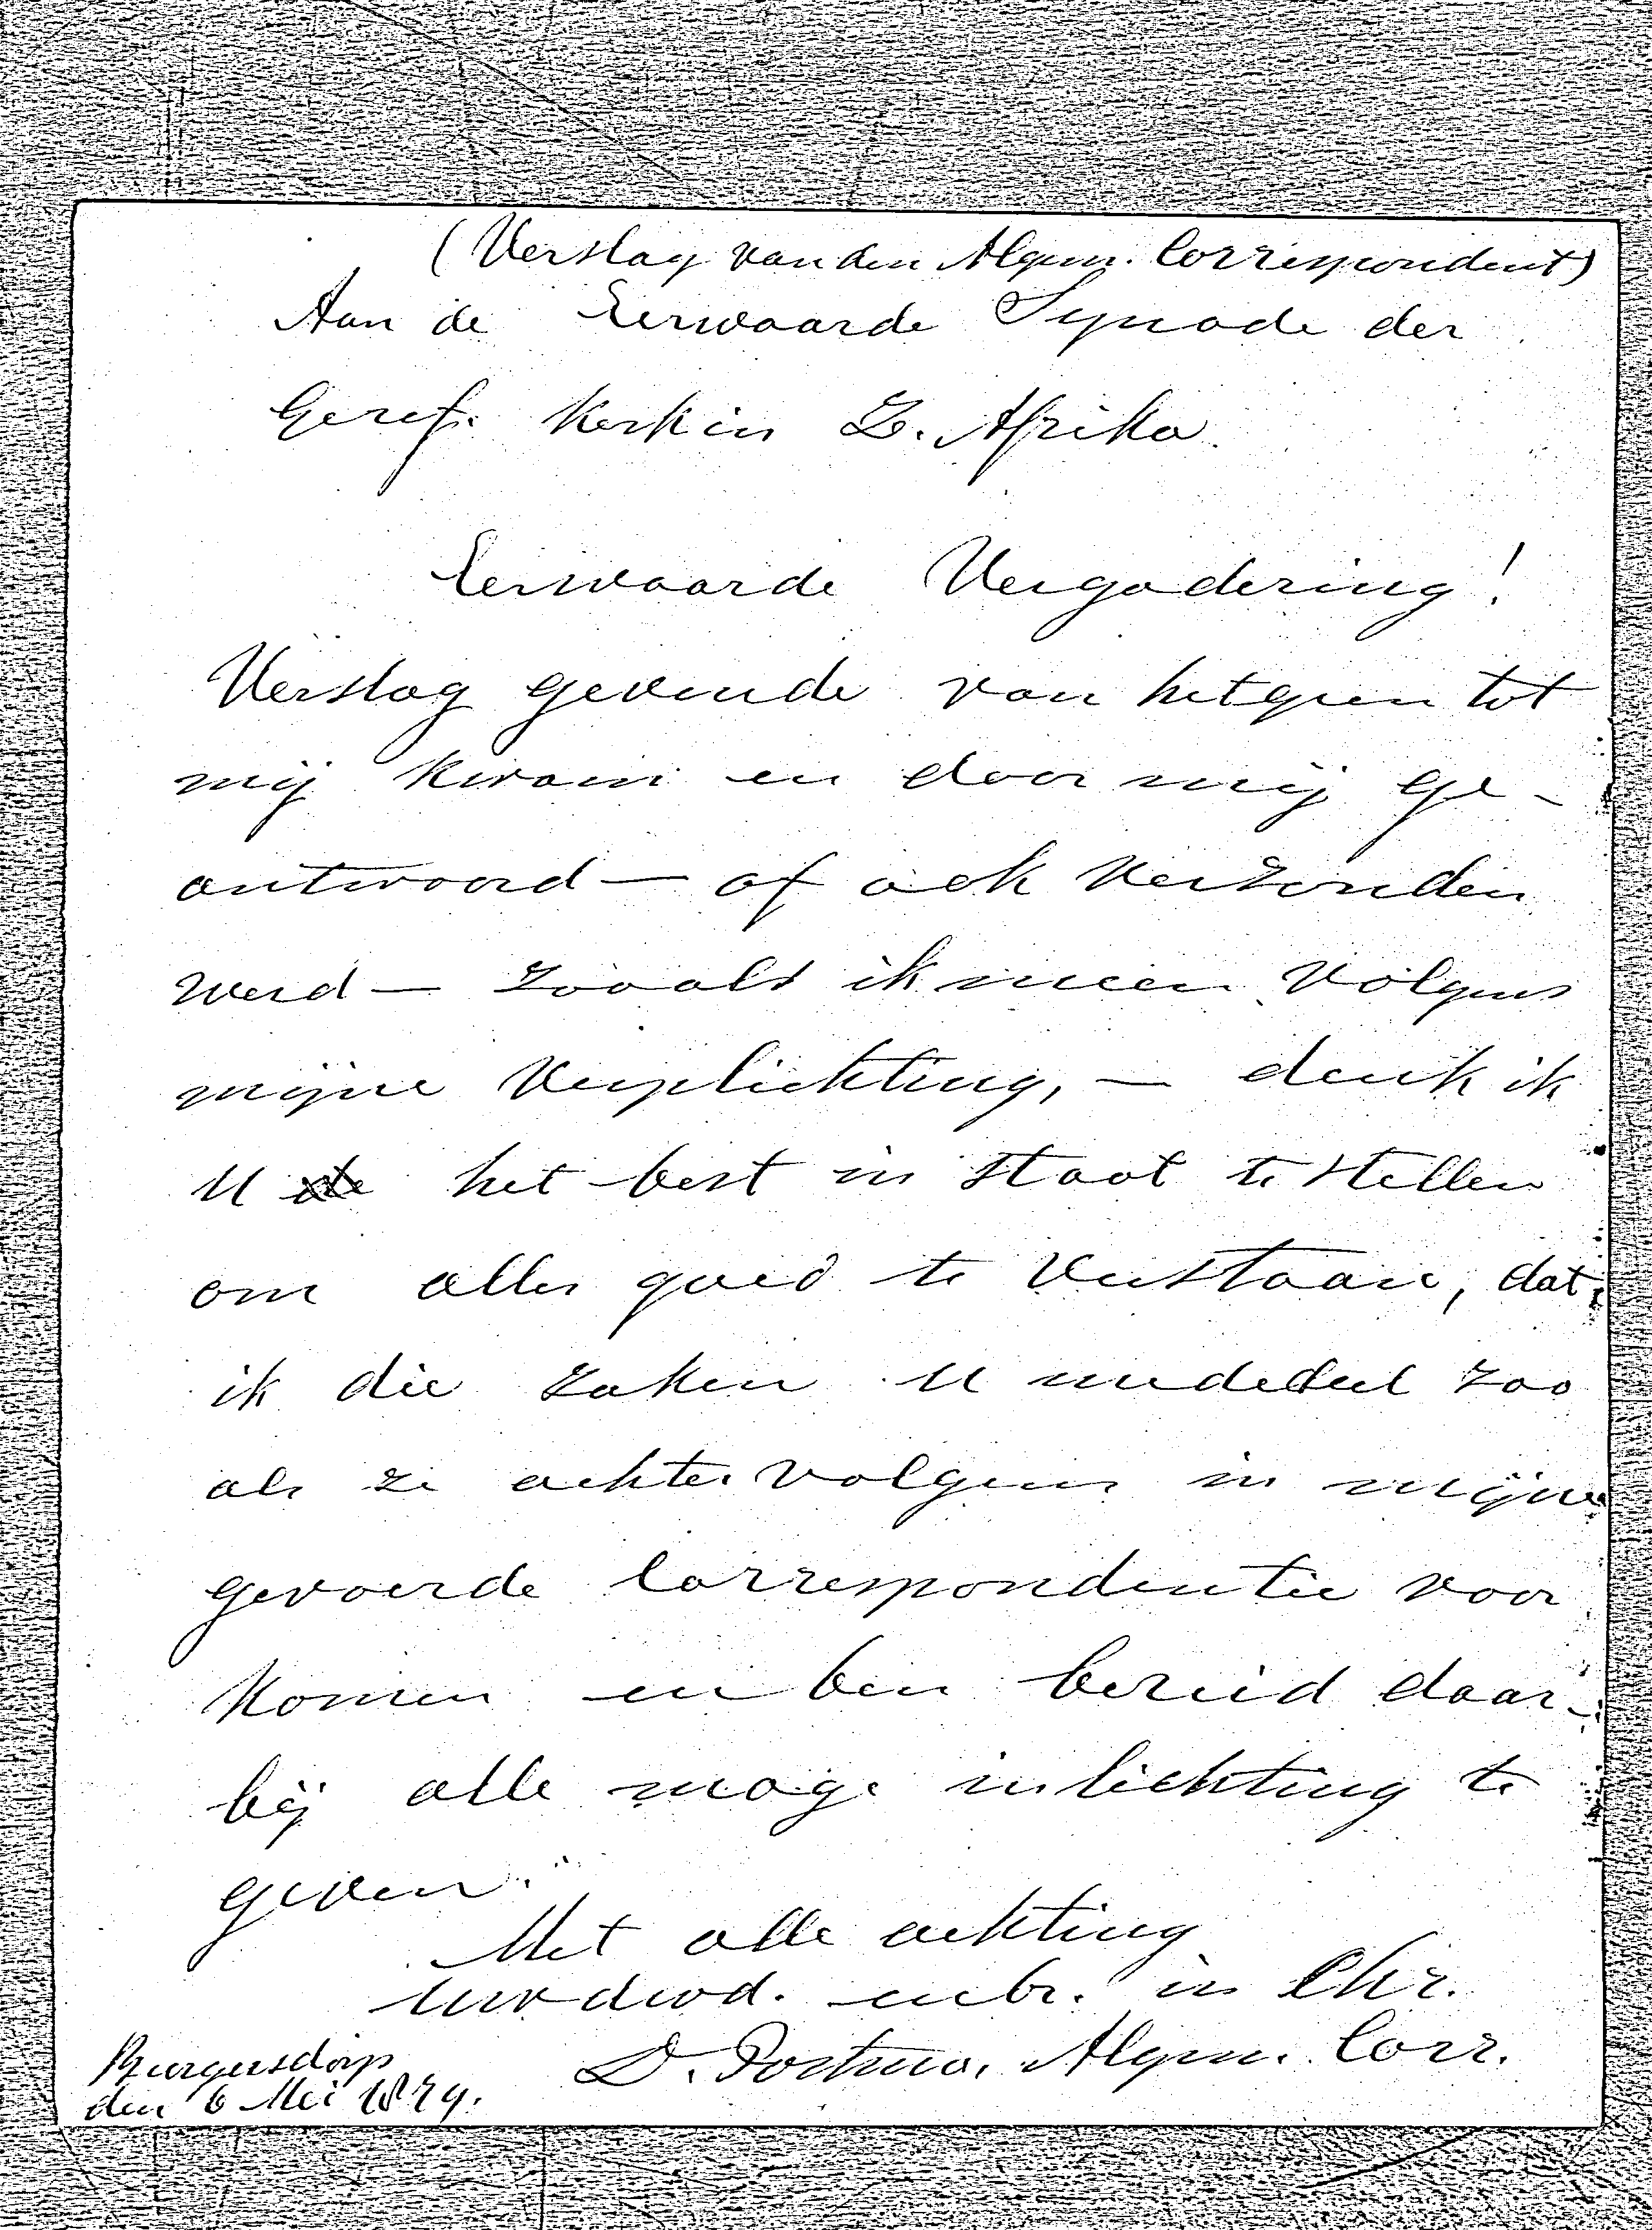 (Verslag van den Algem. Correspondent)
Aan de Eerwaarde Synode der
Geref. Kerk in Z. Afrika.
Eerwaarde Vergadering!
Verslag gevende van hetgeen tot
mij kwam en door mij ge-
antwoord — of ook verzonden
werd — zooals ik meen volgens
mijne verplichting, — denk ik
U de het best in staat te stellen
om alles goed te verstaan, dat
ik die zaken U mededeel zoo
als ze achtervolgens in mijne
gevoerde Correspondentie voor
komen en ben bereid daar-
bij alle moge inlichting te
geven.
Met alle achting
Uw dwd. mbr. in Chr.
D. Postma, Algem. Corr.
Burgersdorp
den 6 Mei 1879.